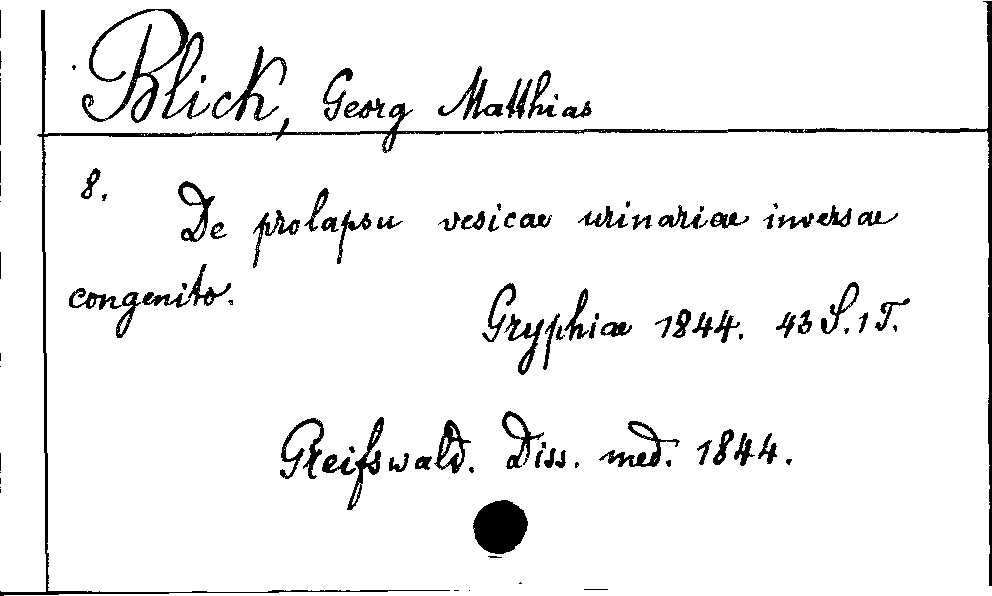 Blick, Georg Matthias
8.
De prolapsu vesicae urinariae inversae
congenito.
Gryphiae 1844. 43 S. 1 T.
Greifswald. Diss. med. 1844.